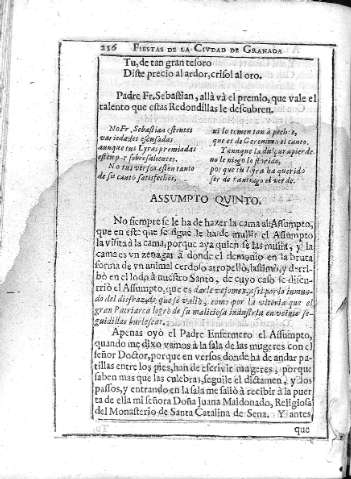 256 FIESTAS DE LA CIVDAD DE GRANADA
Tu, de tan gran tesoro
Diste precio al ardor, crisol al oro.
Padre Fr. Sebastian, allà và el premio, que vale el
talento que estas Redondillas le descubren.
No Fr. Sebastian
variedades
aunque tus Lyras premiadas
No tus versos
de su canto satisfechos,
ni lo temen tan à pechos,
que es de Geronimo el canto.
Y aunque la dulçura pierde
no le niego
por que tu lyra ha querido
ASSVMPTO QVINTO.
No siempre se le ha de hazer la cama al Assumpto,
que en este que se sigue le hà de mullir el Assumpto
la visita à la cama, porque aya quien se las mulla, y la
cama es vn zenagar à donde el demonio en la bruta
forma de vn animal cerdoso atropellò, lastimò, y derri-
bò en el lodo à nuestro Santo, de cuyo caso se discu-
rriò el Assumpto, que es
do del disfraz, de que se valiò, como por la vitoria que el
gran Patriarca logrò de su maliciosa industria en onze se-
guidillas burlescas.
Apenas oyò el Padre Enfermero el Assumpto,
quando me dixo vamos à la sala de las mugeres con el
señor Doctor, porque en versos donde ha de andar pa-
tillas entre los pies, han de escrivir mugeres, porque
saben mas que las culebras, seguile el dictamen, y los
passos, y entrando en la sala me saliò à recibir à la puer-
ta de ella mi señora Doña Juana Maldonado, Religiosa
del Monasterio de Santa Catalina de Sena. Y antes
que